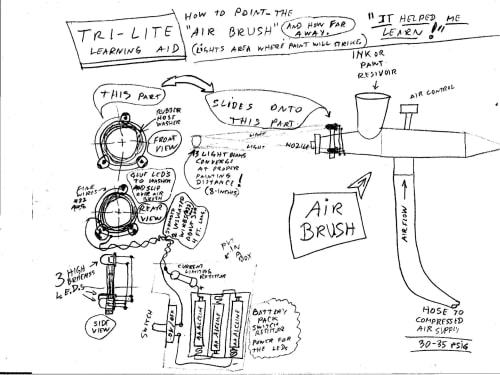 TRI-LITE
LEARNING AID
HOW TO POINT THE
"AIR BRUSH"
(AND HOW FAR
AWAY.
(LIGHTS AREA WHERE PAINT WILL STRIKE)
"IT HELPED ME
LEARN!"
THIS PART
SLIDES ONTO
THIS PART
INK OR
PAINT
RESIVOIR
AIR CONTROL
RUBBER
HOSE
WASHER
FRONT
VIEW
LIGHT
LIGHT
NOZILE
3 LIGHT BEAMS
CONVERGE
AT PROPER
PAINTING
DISTANCE!
(8-INCHS)
GLUE LEDS
TO WASHER
AND SLIP
OVER AIR
BRUSH
FINE
WIRES
#22
AWG
REAR
VIEW
4 FT. LONG
AIR
BRUSH
AIR FLOW
PUT
IN
BOX
3 HIGH
BRIGHTNESS
L.E.D.S
SIDE
VIEW
CURRENT
LIMITING
RESISTOR
SWITCH
AA ALCLINE
AA ALCLINE
AA ALCLINE
BATTERY
PACK
SWITCH
RESISTOR
POWER FOR
THE LEDS
HOSE TO
COMPRESSED
AIR SUPPLY
30-35 PSIG